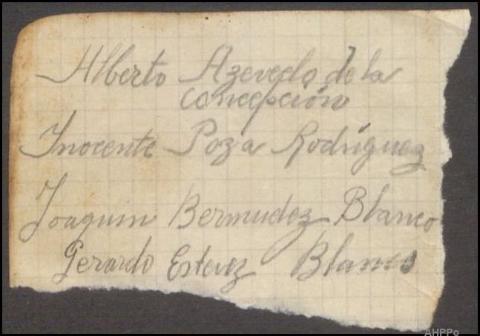 Alberto Azevedo de la
Concepción
Inocente Poza Rodríguez
Joaquin Bermudez Blanco
Gerardo Estevez Blanco
AHPPo